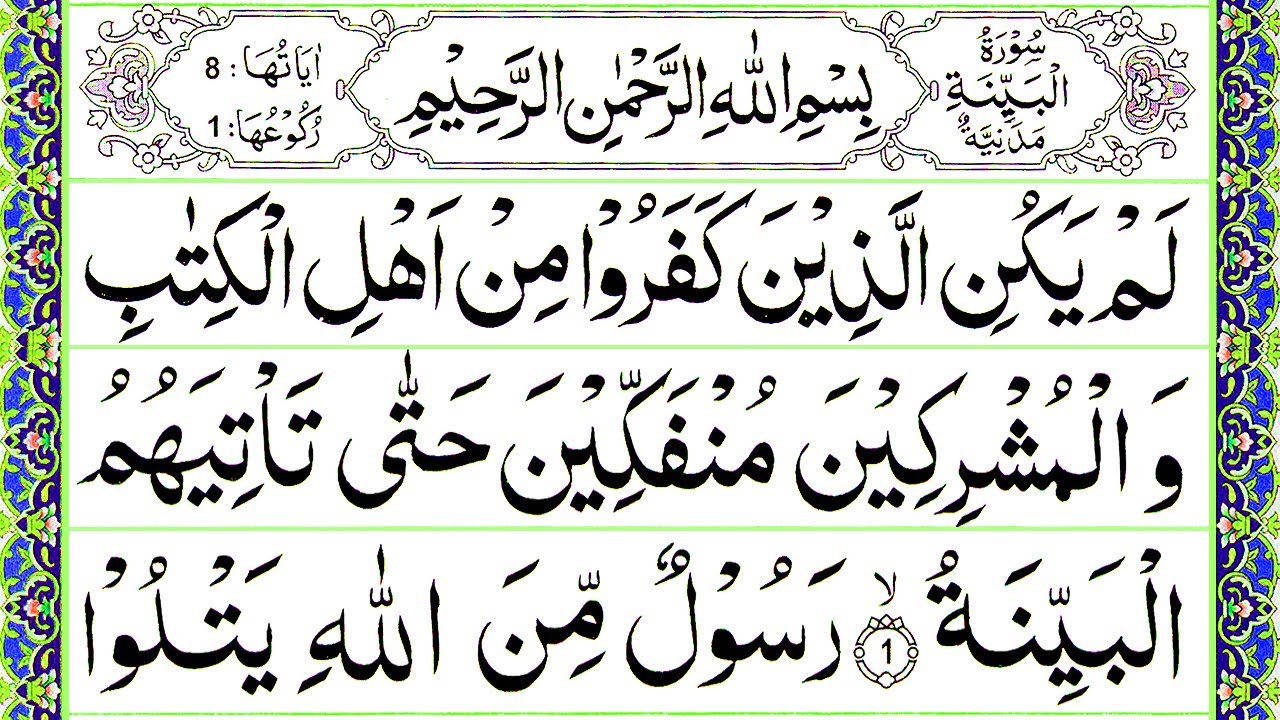 سُوْرَةُ
الْبَيِّنَةِ
مَدَنِيَّةٌ
بِسْمِ اللّٰهِ الرَّحْمٰنِ الرَّحِيْمِ
اٰيَاتُهَا: 8
رُكُوْعُهَا: 1
لَمْ يَكُنِ الَّذِيْنَ كَفَرُوْا مِنْ اَهْلِ الْكِتٰبِ
وَالْمُشْرِكِيْنَ مُنْفَكِّيْنَ حَتّٰى تَاْتِيَهُمُ
الْبَيِّنَةُ ۙ 1 رَسُوْلٌ مِّنَ اللّٰهِ يَتْلُوْا